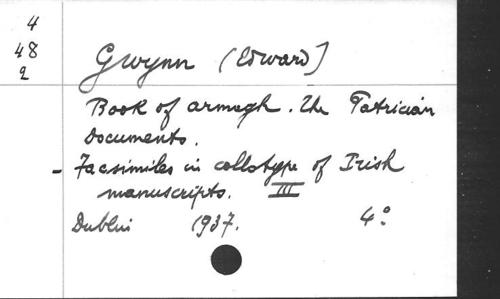 4
48
2
Gwynn (Edward)
Book of armagh. The Patrician
Documents.
- Facsimiles in collotype of Irish
manuscripts. III
Dublin 1937. 4°